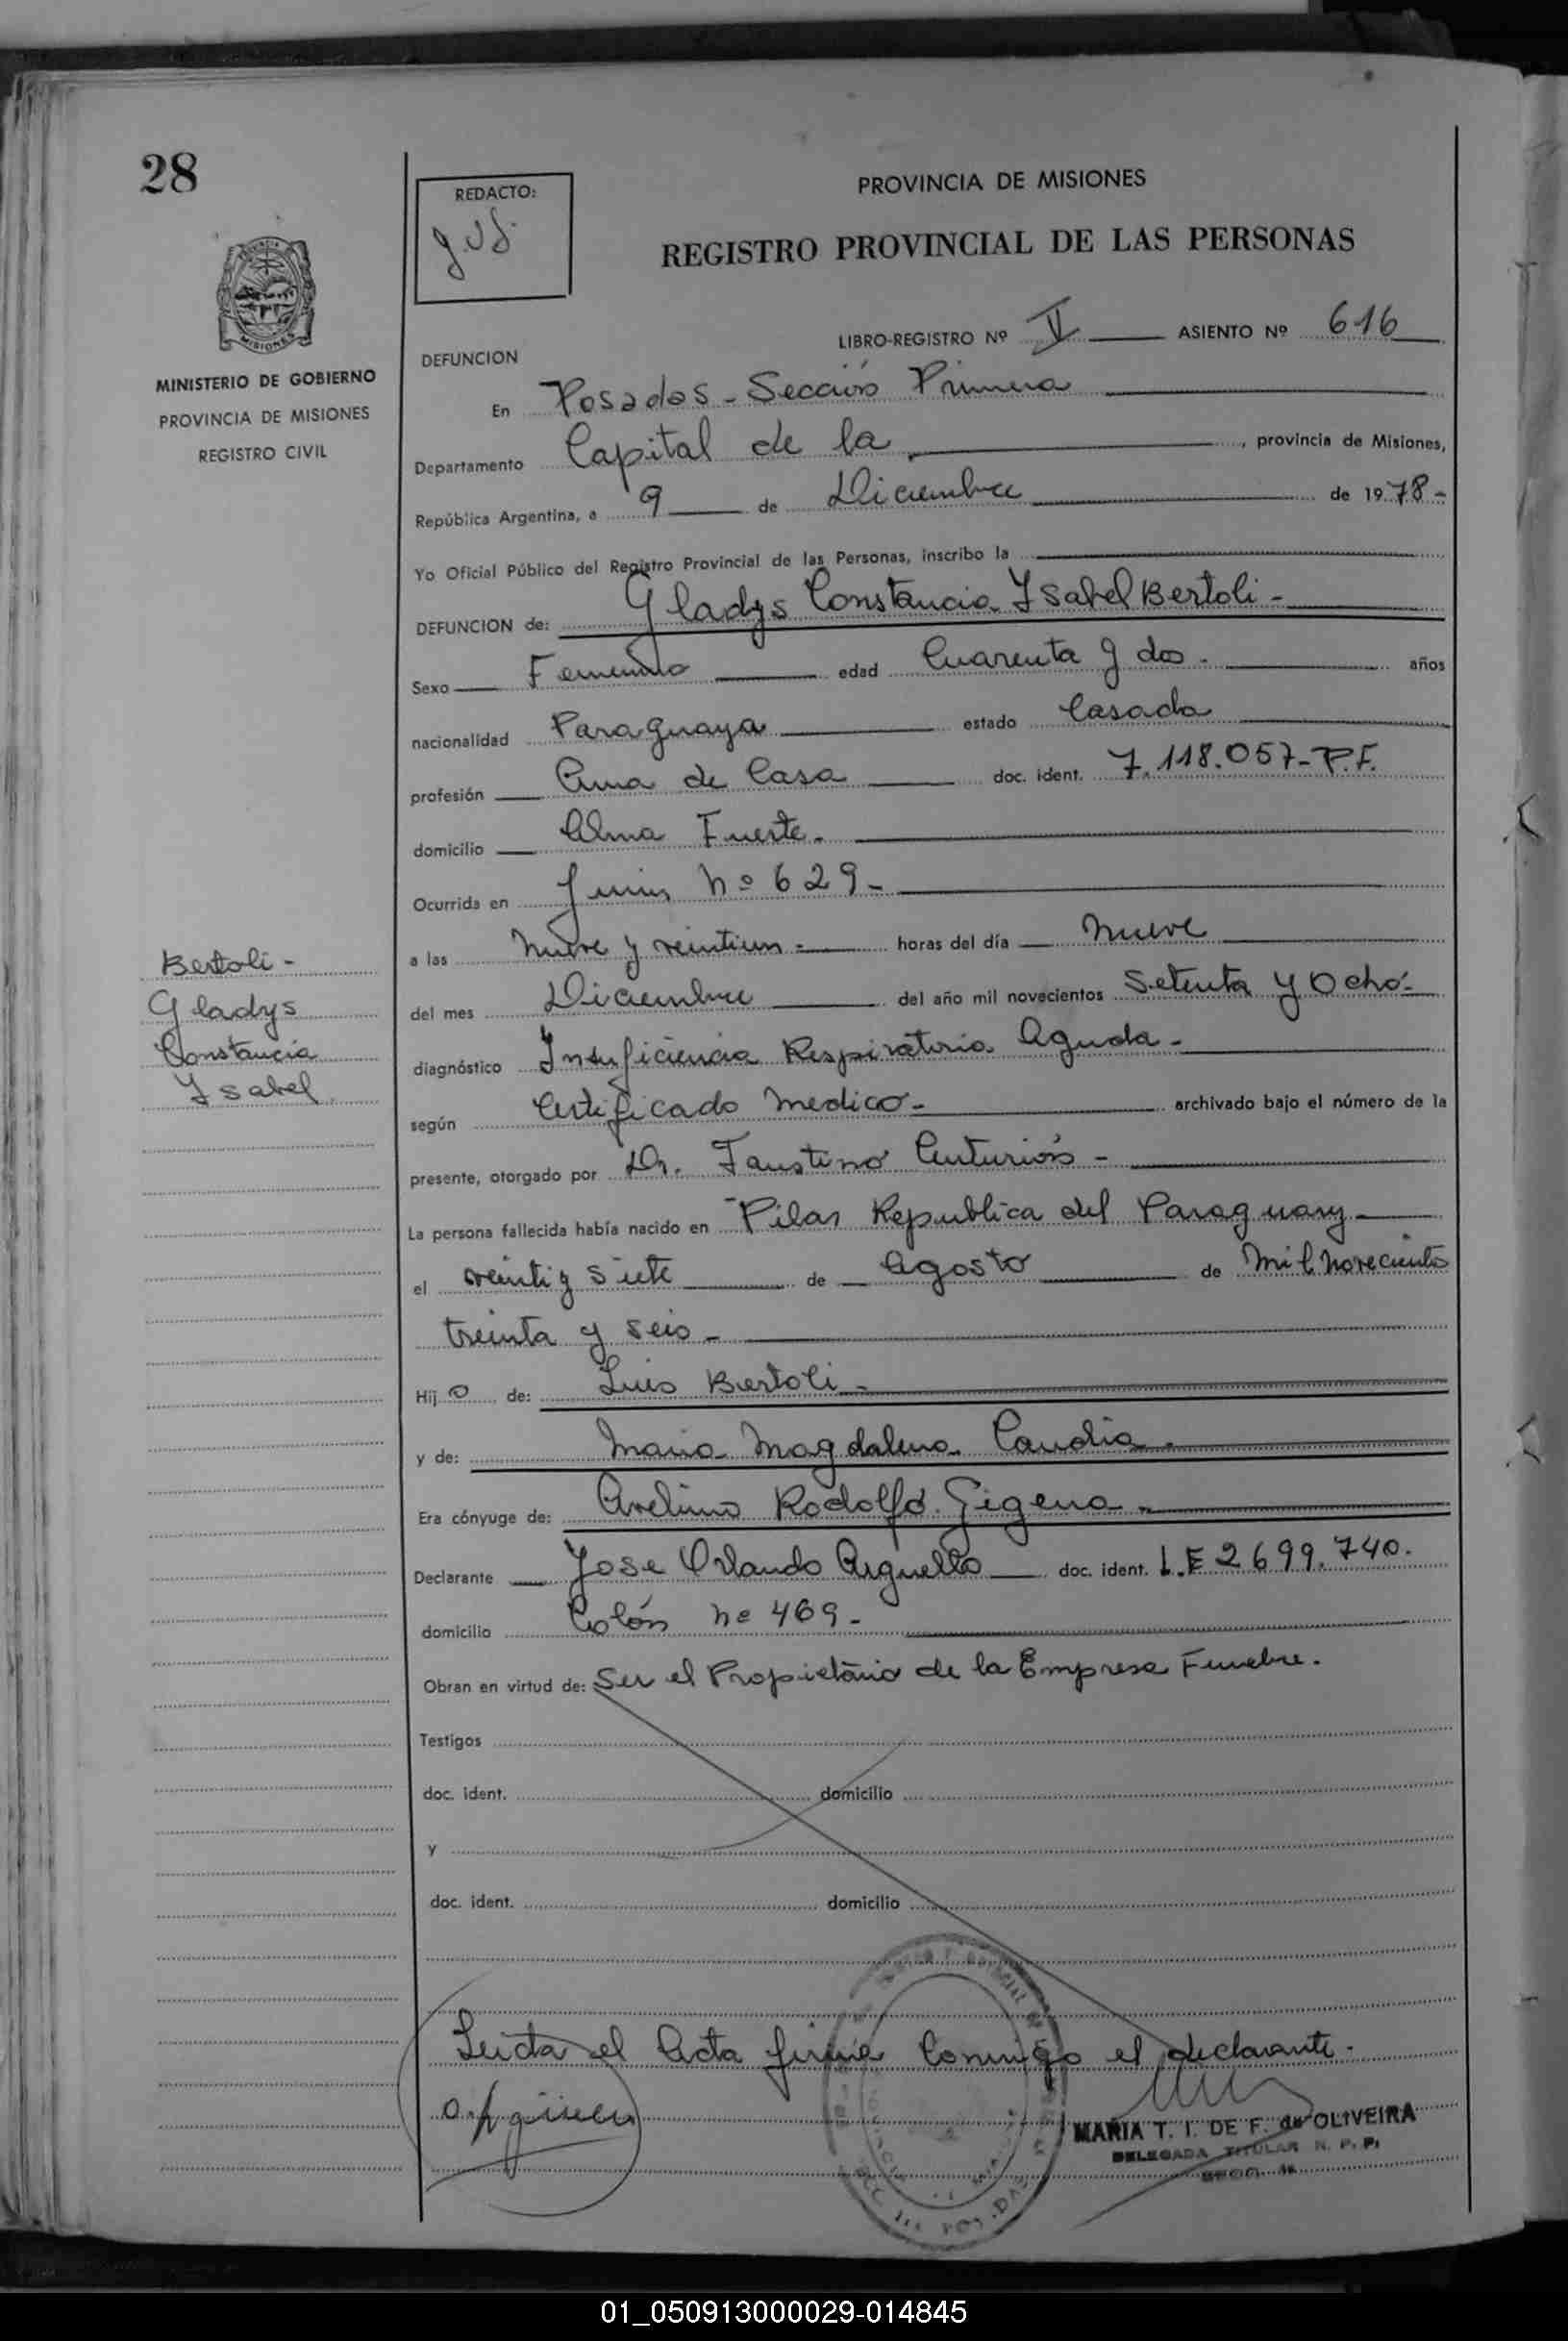 28
REDACTO:
PROVINCIA DE MISIONES
REGISTRO PROVINCIAL DE LAS PERSONAS
MISIONES
MINISTERIO DE GOBIERNO
PROVINCIA DE MISIONES
REGISTRO CIVIL
LIBRO-REGISTRO Nº II ASIENTO Nº 616
DEFUNCION
En Posadas - Sección Primera
Departamento Capital de la, provincia de Misiones,
República Argentina, a 9 de Diciembre de 1978-
Yo Oficial Público del Registro Provincial de las Personas, inscribo la
DEFUNCION de: Gladys Constancia Ysabel Bertoli -
Sexo Femenino edad Cuarenta y dos - años
nacionalidad Paraguaya estado Casada
profesión Ama de Casa doc. ident. 7.118.057-P.F.
domicilio Alma Fuerte -
Ocurrida en Junin Nº 629 -
a las nueve y veintiun - horas del día nueve
del mes Diciembre del año mil novecientos Setenta y Ocho -
diagnóstico Insuficiencia Respiratoria Aguda -
según Certificado Medico - archivado bajo el número de la
presente, otorgado por Dr. Faustino Centurión -
La persona fallecida había nacido en Pilar Republica del Paraguay
el veinti y siete de Agosto de mil novecientos
treinta y seis -
Hij o de: Luis Bertoli -
y de: Maria Magdalena Candia -
Era cónyuge de: Avelino Rodolfo Gigena -
Declarante Jose Orlando Arguello doc. ident. L.E 2699.740.
domicilio Colón Nº 469 -
Obran en virtud de: Ser el Propietario de la Empresa Funebre.
Testigos
doc. ident. domicilio
y
doc. ident. domicilio
Leida el Acta firma Conmigo el declarante -
MARIA T. I. DE F. de OLIVEIRA
DELEGADA TITULAR R. P. P.
SECC. 1a
Bertoli -
Gladys
Constancia
Ysabel
01_050913000029-014845